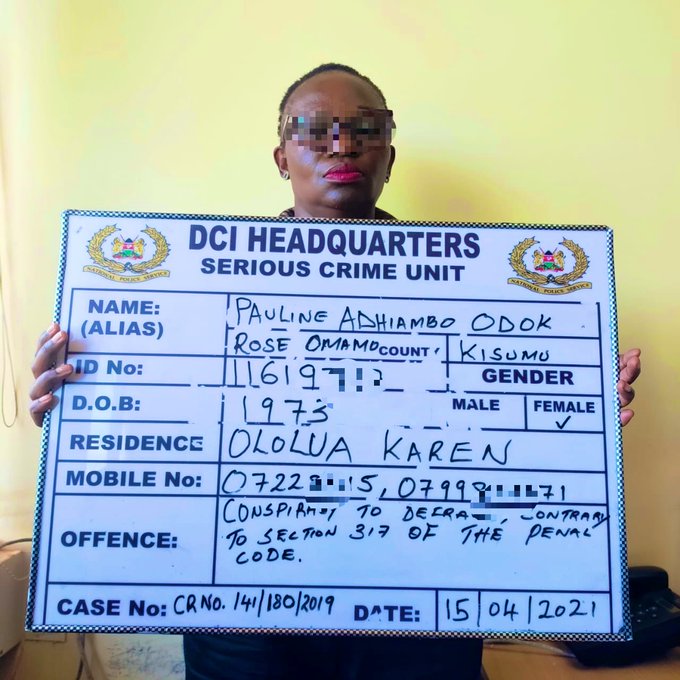 DCI HEADQUARTERS
SERIOUS CRIME UNIT
NATIONAL POLICE SERVICE
NATIONAL POLICE SERVICE
NAME: PAULINE ADHIAMBO ODOK
(ALIAS) ROSE OMAMO COUNT KISUMU
ID No: 11619 GENDER
D.O.B: 1973 MALE FEMALE ✓
RESIDENCE OLOLUA KAREN
MOBILE No: 0722 15, 0799 71
OFFENCE: CONSPIRACY TO CONTRARY
TO SECTION 317 OF THE PENAL
CODE.
CASE No: CR NO. 141/180/2019 DATE: 15/04/2021